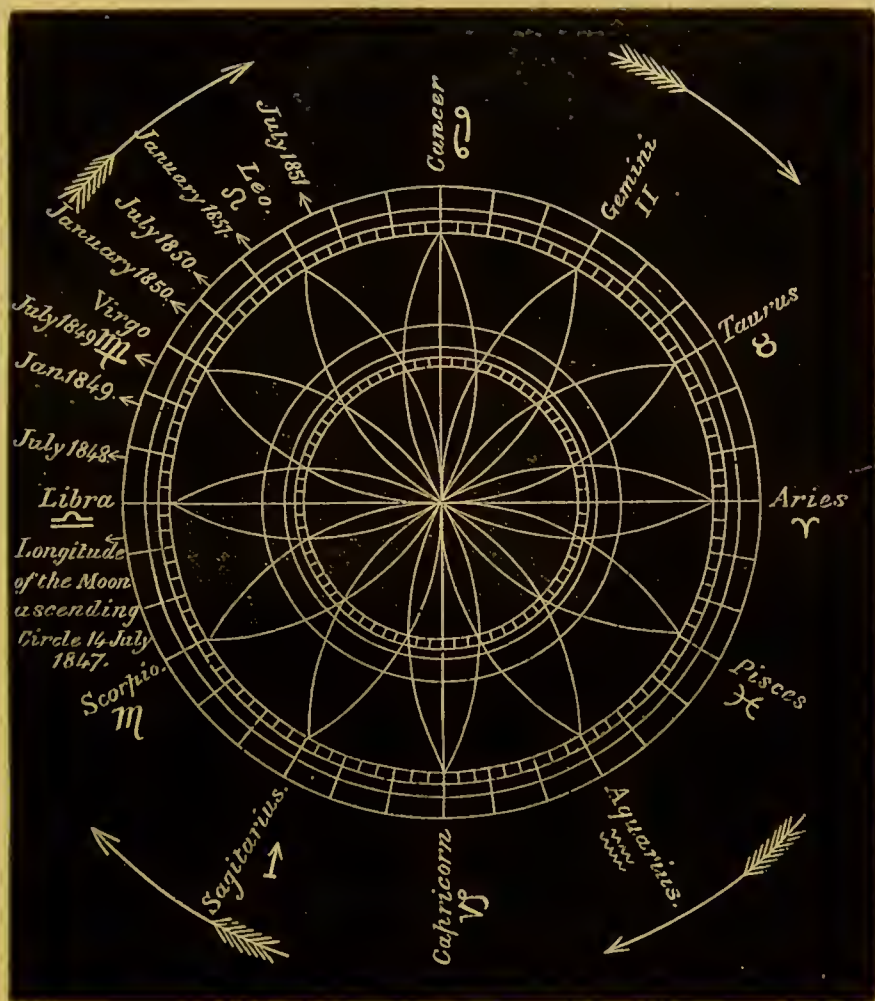 Cancer
♋
Gemini
II
Taurus
♉
Aries
♈
Pisces
♓
Aquarius.
♒
Capricorn
♑
Sagitarius.
↑
Scorpio.
♏
Longitude
of the Moon
ascending
Circle 14 July
1847.
Libra
♎
July 1848
Jan 1849.
July 1849
Virgo
♍
January 1850.
July 1850.
January 1851.
Leo.
♌
July 1851